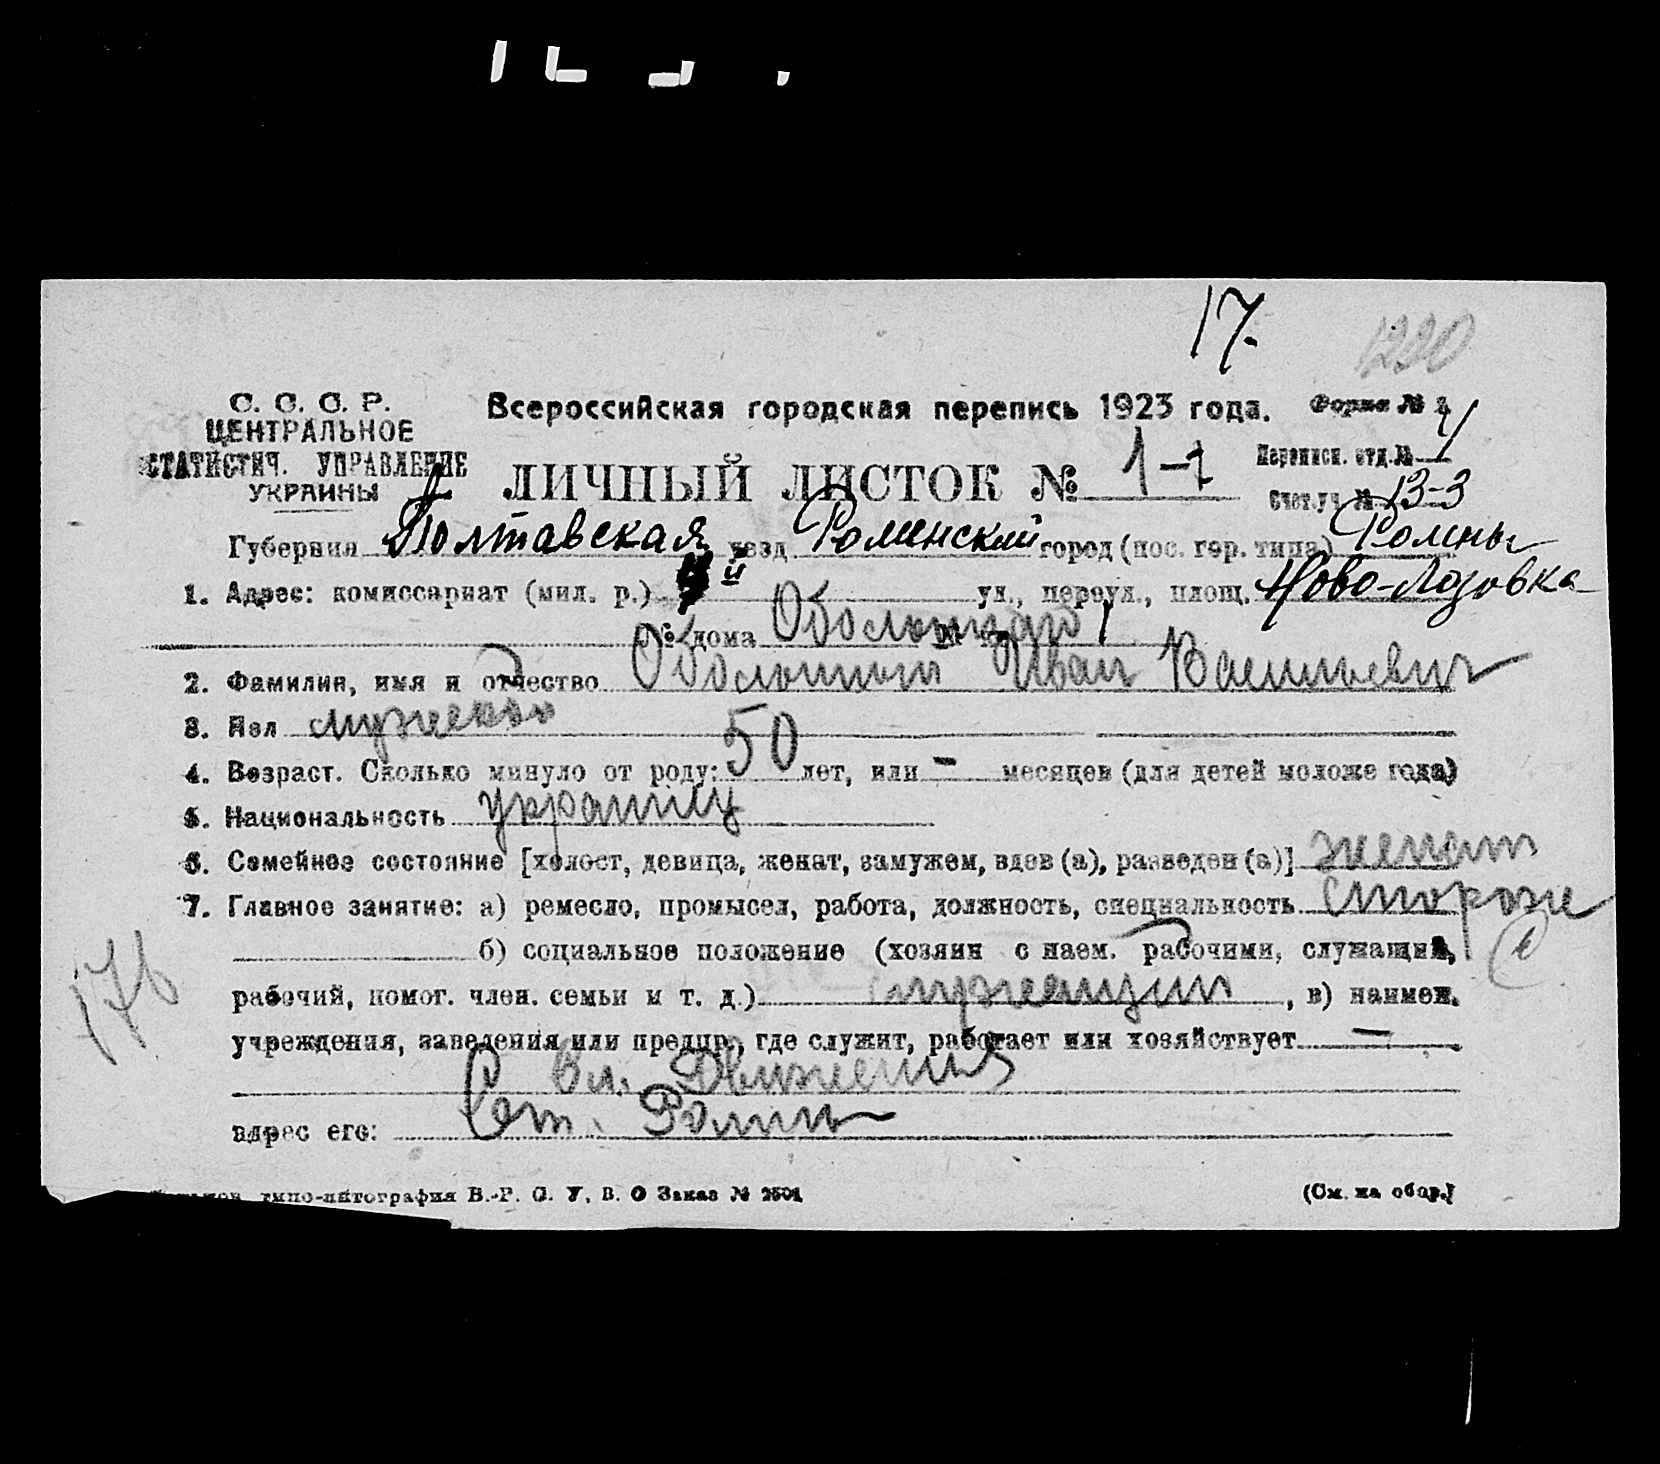 17.
1220
С. С. С. Р.
ЦЕНТРАЛЬНОЕ
СТАТИСТИЧ. УПРАВЛЕНИЕ
УКРАИНЫ
Всероссийская городская перепись 1923 года.
Форма №
ЛИЧНЫЙ ЛИСТОК № 1-1
Переписн. отд. № 1
Счет. уч. № 13-3
Губерния Полтавская уезд Роменский город (пос. гор. типа) Ромны
1. Адрес: комиссариат (мил. р.) й ул., переул., площ. Ново-Лозовка
№ дома
2. Фамилия, имя и отчество Оболонный Иван Васильевич
3. Пол мужеско
4. Возраст. Сколько минуло от роду: 50 лет, или - месяцев (для детей моложе года)
5. Национальность
6. Семейное состояние [холост, девица, женат, замужем, вдов (а), разведен (а)] женат
7. Главное занятие: а) ремесло, промысел, работа, должность, специальность сторож
б) социальное положение (хозяин с наем. рабочими, служащий,
рабочий, помог. член. семьи и т. д.) служащий, в) наимен.
учреждения, заведения или предпр., где служит, работает или хозяйствует —
Сл. Движения
адрес его: Ст. Ромны
176
типо-литография В.-Р. С. У. В. О Заказ № 2501
(См. на обор.)